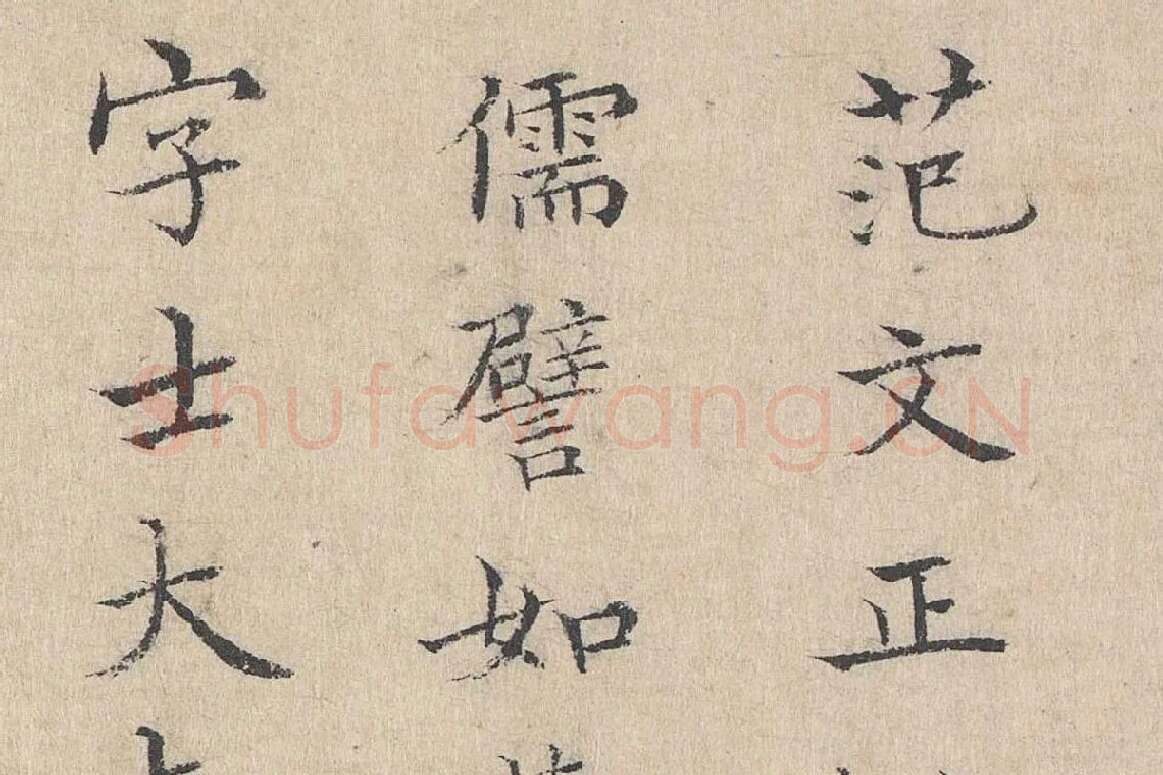 范文正
儒譬如
字士大
Shufawang.CN